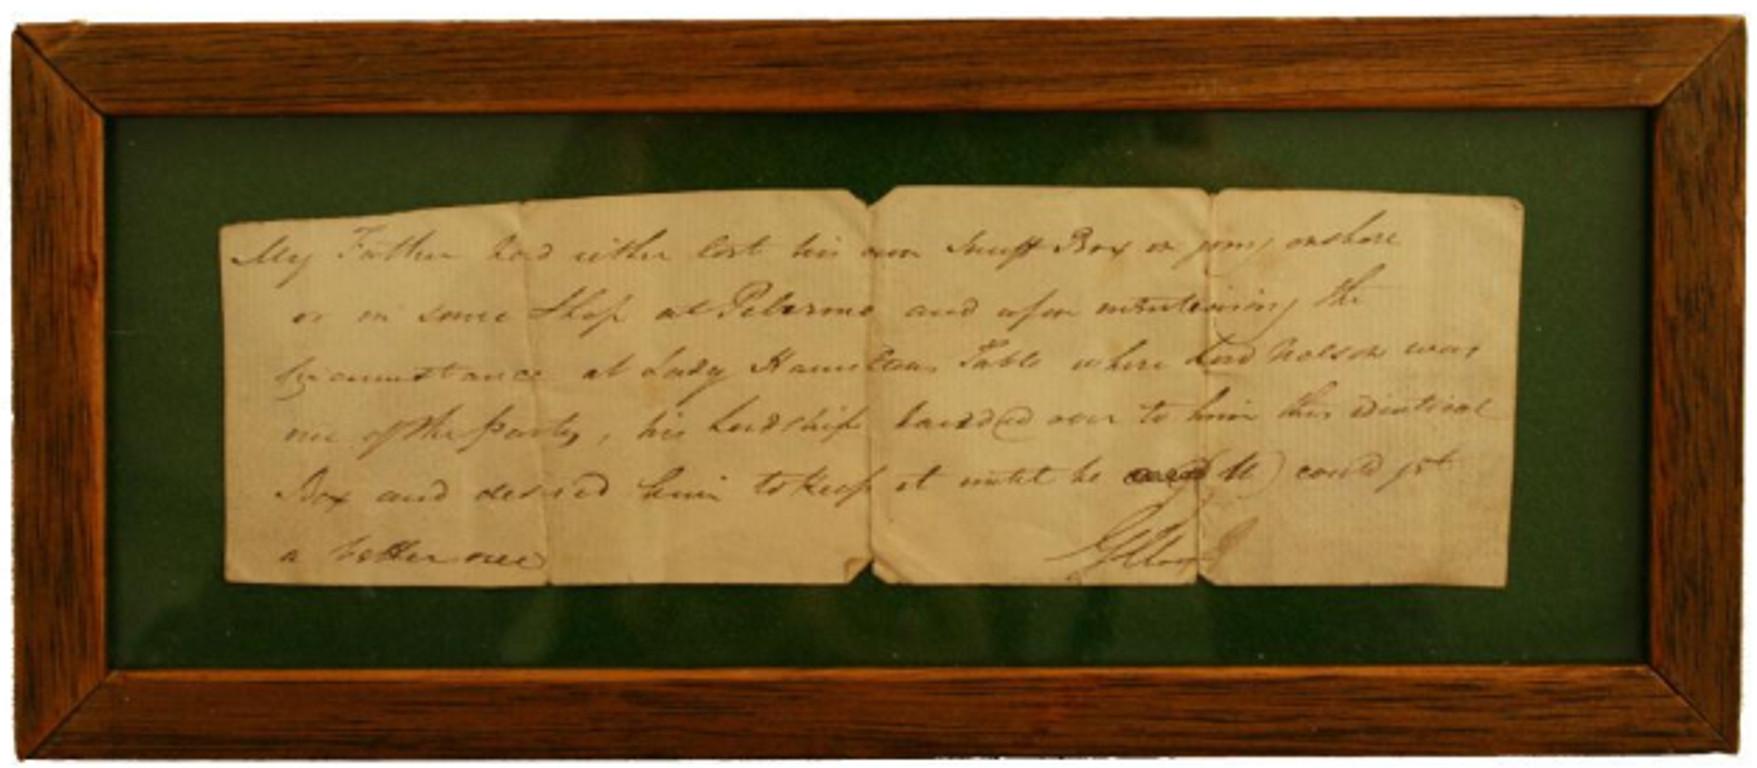 My Father had either lost his own Snuff Box in going onshore
or in some Shop at Palermo and upon mentioning the
Circumstance at Lady Hamiltons Table where Lord Nelson was
one of the Party, his Lordship handed over to him this identical
Box and desired him to keep it until he could get
a better one